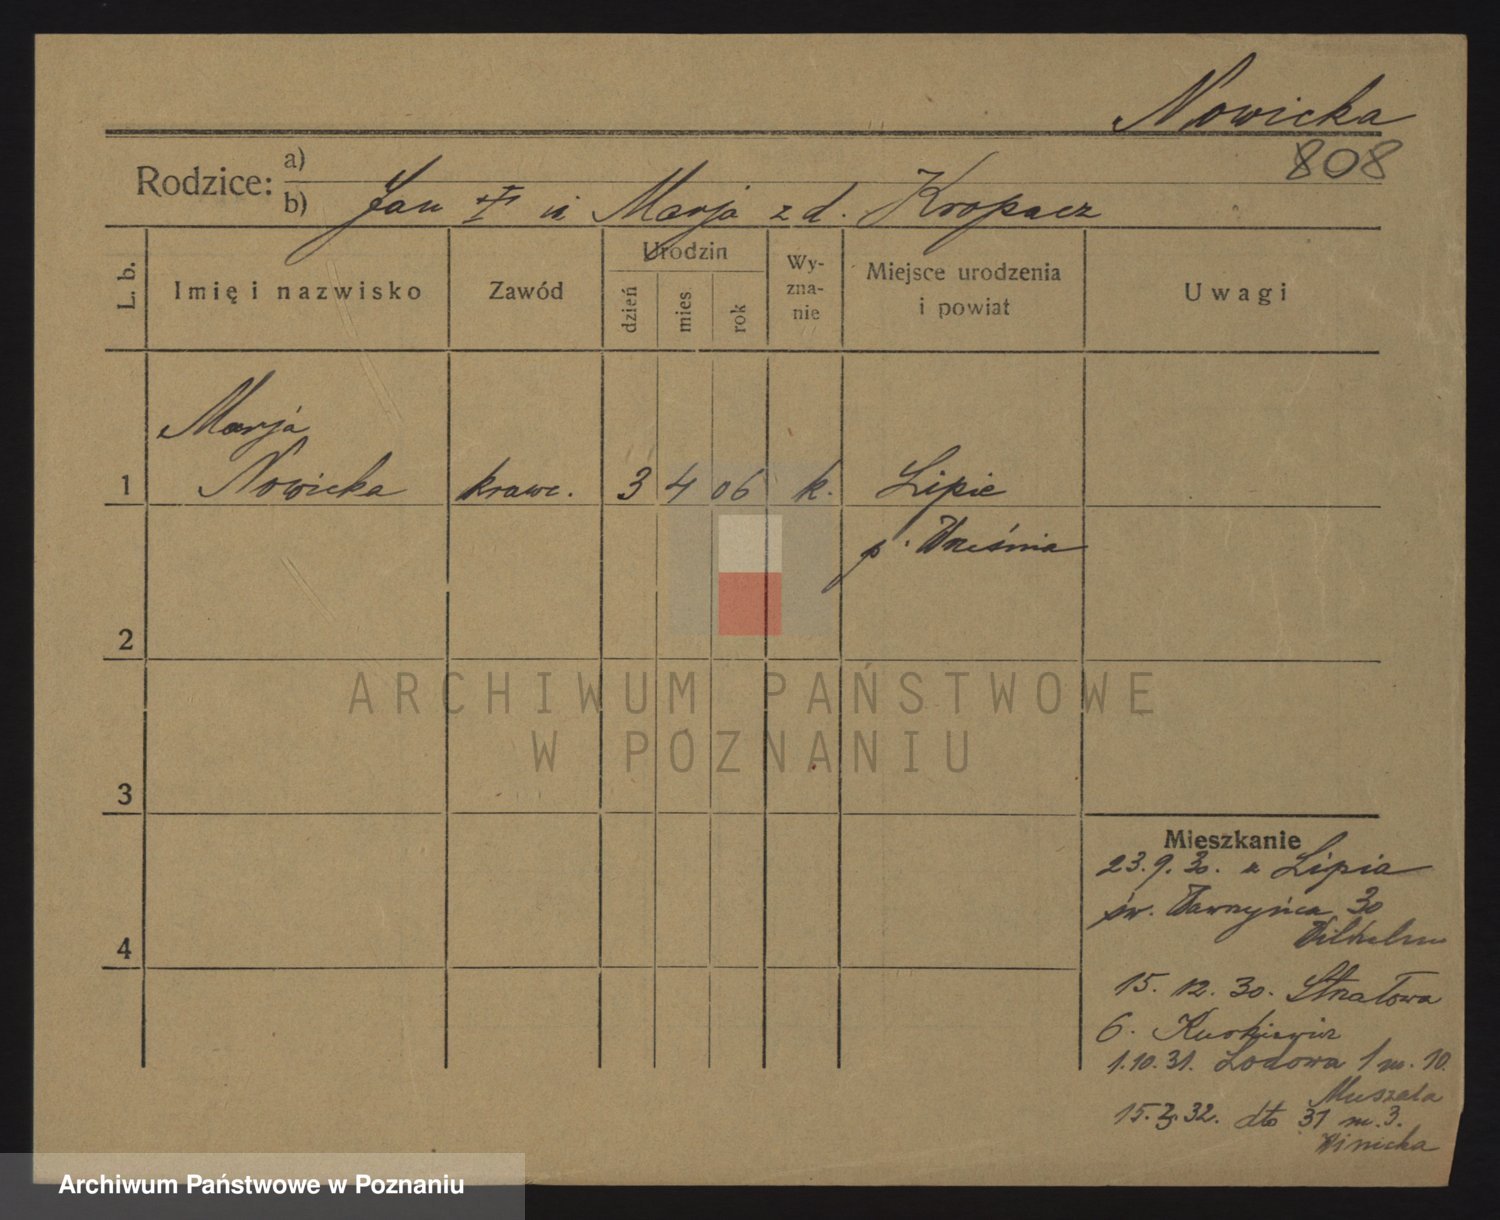 Nowicka
808
Rodzice: a)
b) Jan ‡ i Marja z d. Kropacz
L. b. Imię i nazwisko Zawód Urodzin dzień mies rok Wy-zna-nie Miejsce urodzenia i powiat Uwagi
Marja
1 Nowicka krawc. 3 4 06 k. Lipie
p. Września
2
3
4
Mieszkanie
23.9.30. z Lipia
św. Wawrzyńca 30
15. 12. 30. Strzałowa
6.
1.10.31. Łodowa 1 m. 10.
Muszala
15. 32. dto 31 m. 3.
Winicka
ARCHIWUM PAŃSTWOWE
W POZNANIU
Archiwum Państwowe w Poznaniu